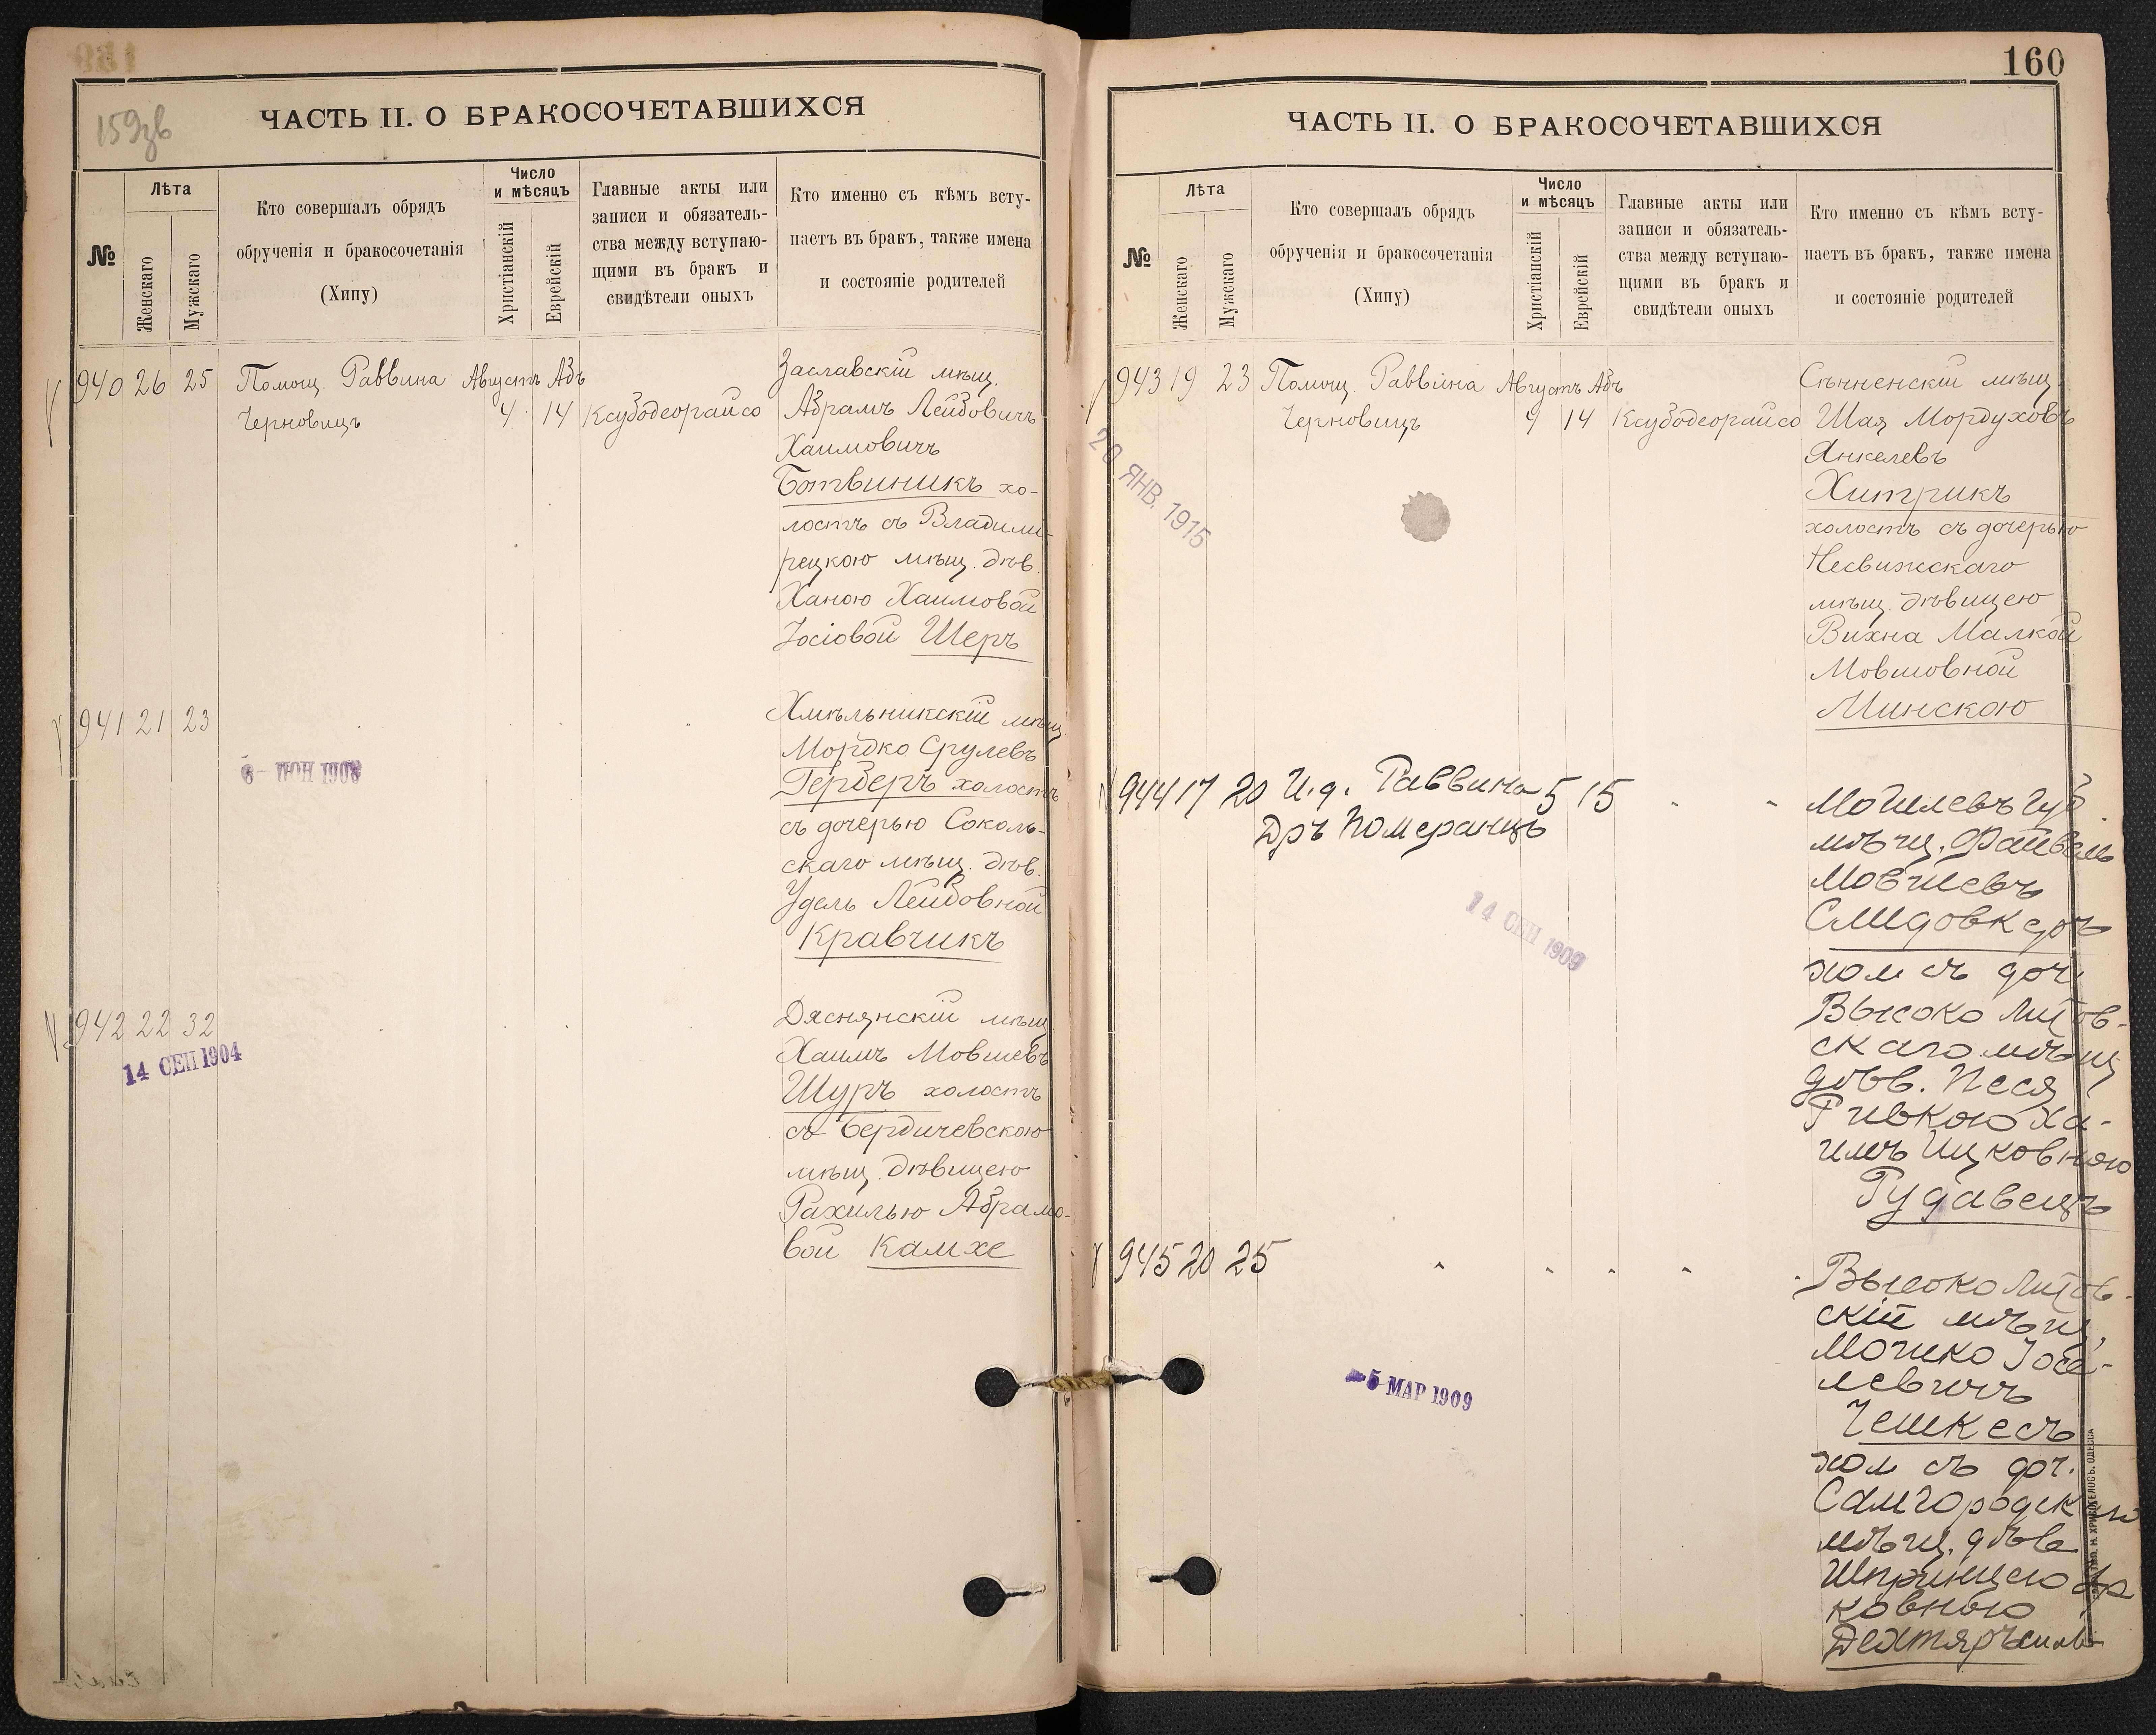 159зв
ЧАСТЬ II. О БРАКОСОЧЕТАВШИХСЯ
№
Лѣта
Женскаго
Мужскаго
Кто совершалъ обрядъ
обрученія и бракосочетанія
(Хипу)
Число
и мѣсяцъ
Христіанскій
Еврейскій
Главные акты или
записи и обязатель-
ства между вступаю-
щими въ бракъ и
свидѣтели оныхъ
Кто именно съ кѣмъ всту-
паетъ въ бракъ, также имена
и состояніе родителей
940 26 25 Помощ. Раввина Августъ Абъ
Черновицъ 4 14 Ксубодеорайсо
Заславскій мѣщ.
Абрамъ Лейбовичъ
Хаимовичъ
Ботвиникъ хо-
лостъ съ Владими-
рецкою мѣщ. дѣв.
Ханою Хаимовой
Іосіовой Шеръ
941 21 23
Хмѣльникскій мѣщ
Мордко Срулевъ
Герберъ холостъ
съ дочерью Соколь-
скаго мѣщ. дѣв.
Удель Лейбовной
Кравчикъ
6- ІЮН 1908
942 22 32
14 СЕН 1904
Дяснянскій мѣщ
Хаимъ Мовшевъ
Шуръ холостъ
съ Бердичевскою
мѣщ. дѣвицею
Рахилью Абрамо-
вой Камхе
160
ЧАСТЬ II. О БРАКОСОЧЕТАВШИХСЯ
№
Лѣта
Женскаго
Мужскаго
Кто совершалъ обрядъ
обрученія и бракосочетанія
(Хипу)
Число
и мѣсяцъ
Христіанскій
Еврейскій
Главные акты или
записи и обязатель-
ства между вступаю-
щими въ бракъ и
свидѣтели оныхъ
Кто именно съ кѣмъ всту-
паетъ въ бракъ, также имена
и состояніе родителей
943 19 23 Помощ. Раввина Августъ Абъ
Черновицъ 4 14 Ксубодеорайсо
20 ЯНВ. 1915
Сѣнненскій мѣщ
Шая Мордуховъ
Янкелевъ
Хитрикъ
холостъ съ дочерью
Несвижскаго
мѣщ. дѣвицею
Вихна Малкой
Мовшовной
Минскою
944 17 20 И.д. Раввина 5 15
Дръ Померанцъ
14 СЕН 1909
Могилевъ Губ.
мѣщ. Файвель
Мовшевъ
Слидовкеръ
хол съ доч
Высоко Литов-
скаго мѣщ
дѣв. Песя
Ривкою Ха-
имъ Ицковною
Рудавецъ
945 20 25
-5 МАР 1909
Высоко Литов-
скій мѣщ,
Мошко Іосе-
левичъ
Чешкесъ
хол съ доч.
Самгородск
мѣщ. дѣв
Шпринцею
ковною
П. Н. ХРИСОГЕЛОСЪ. ОДЕССА